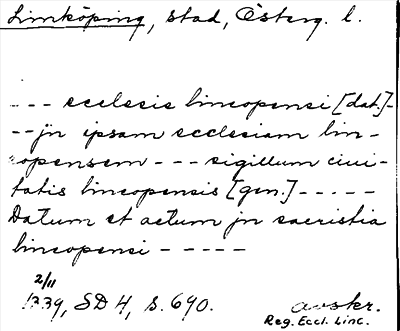 Linköping, stad, Österg. l.
--- ecclesie lincopensi [dat.]-
--jn ipsam ecclesiam lin-
copensem --- sigillum ciui-
tatis lincopensis [gen.] -----
Datum et actum jn sacristia
lincopensi -----
2/11
1339, SD 4, s. 690.
avskr.
Reg. Eccl. Linc.